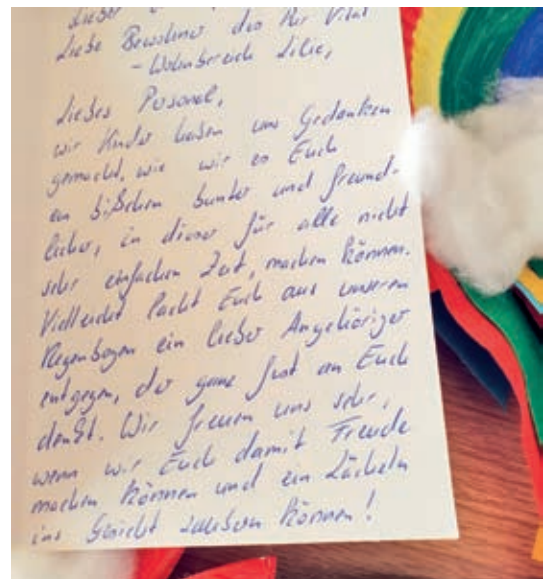 Lieber
Liebe Bewohner des Pur Vital
- Wohnbereich Lilie,
Liebes Personal,
wir Kinder haben uns Gedanken
gemacht, wie wir es Euch
ein bißchen bunter und freund-
licher, in dieser für alle nicht
sehr einfachen Zeit, machen können.
Vielleicht lacht Euch aus unserem
Regenbogen ein lieber Angehöriger
entgegen, der ganz fest an Euch
denkt. Wir freuen uns sehr,
wenn wir Euch damit Freude
machen können und ein Lächeln
ins Gesicht zaubern können!